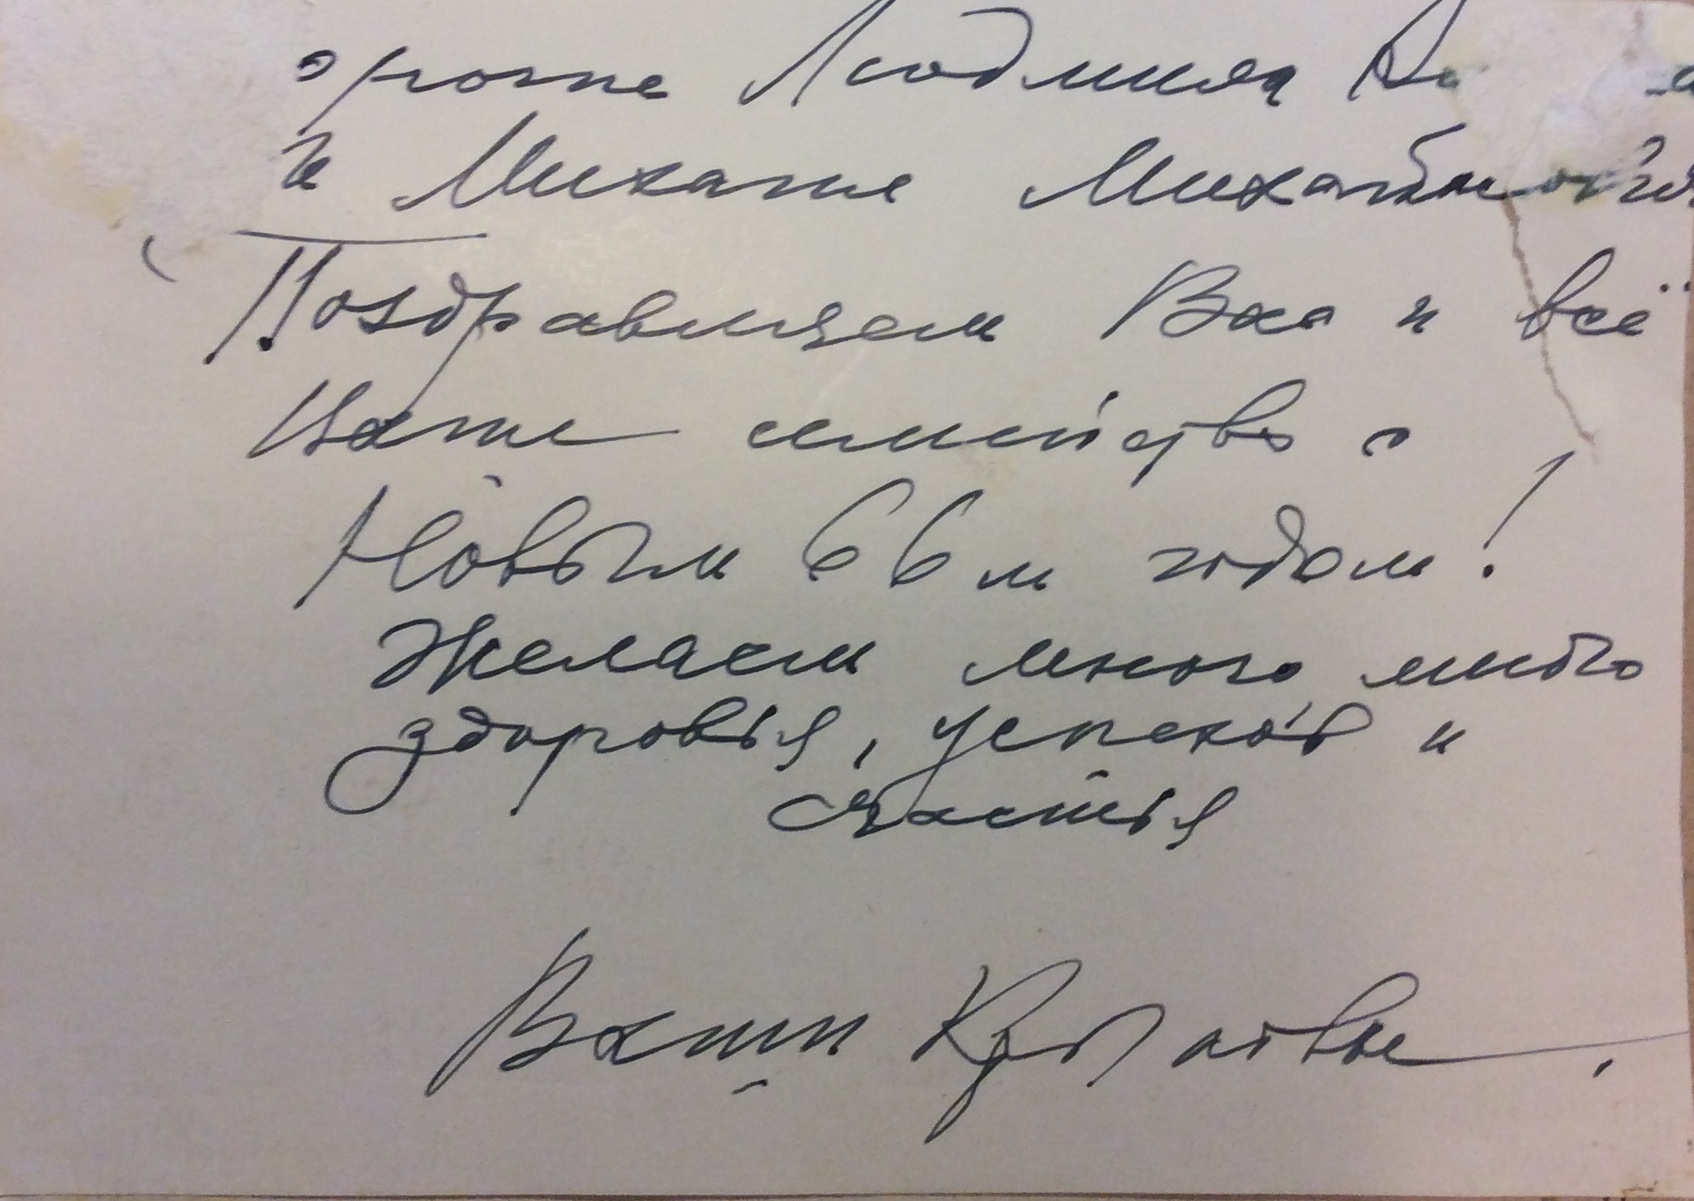 орогие Людмила
и Михаил Михайлович
Поздравляем Вас и всё
Ваше семейство с
Новым 66 м годом!
Желаем много, много
здоровья, успехов и
счастья
Ваши Крыловы.